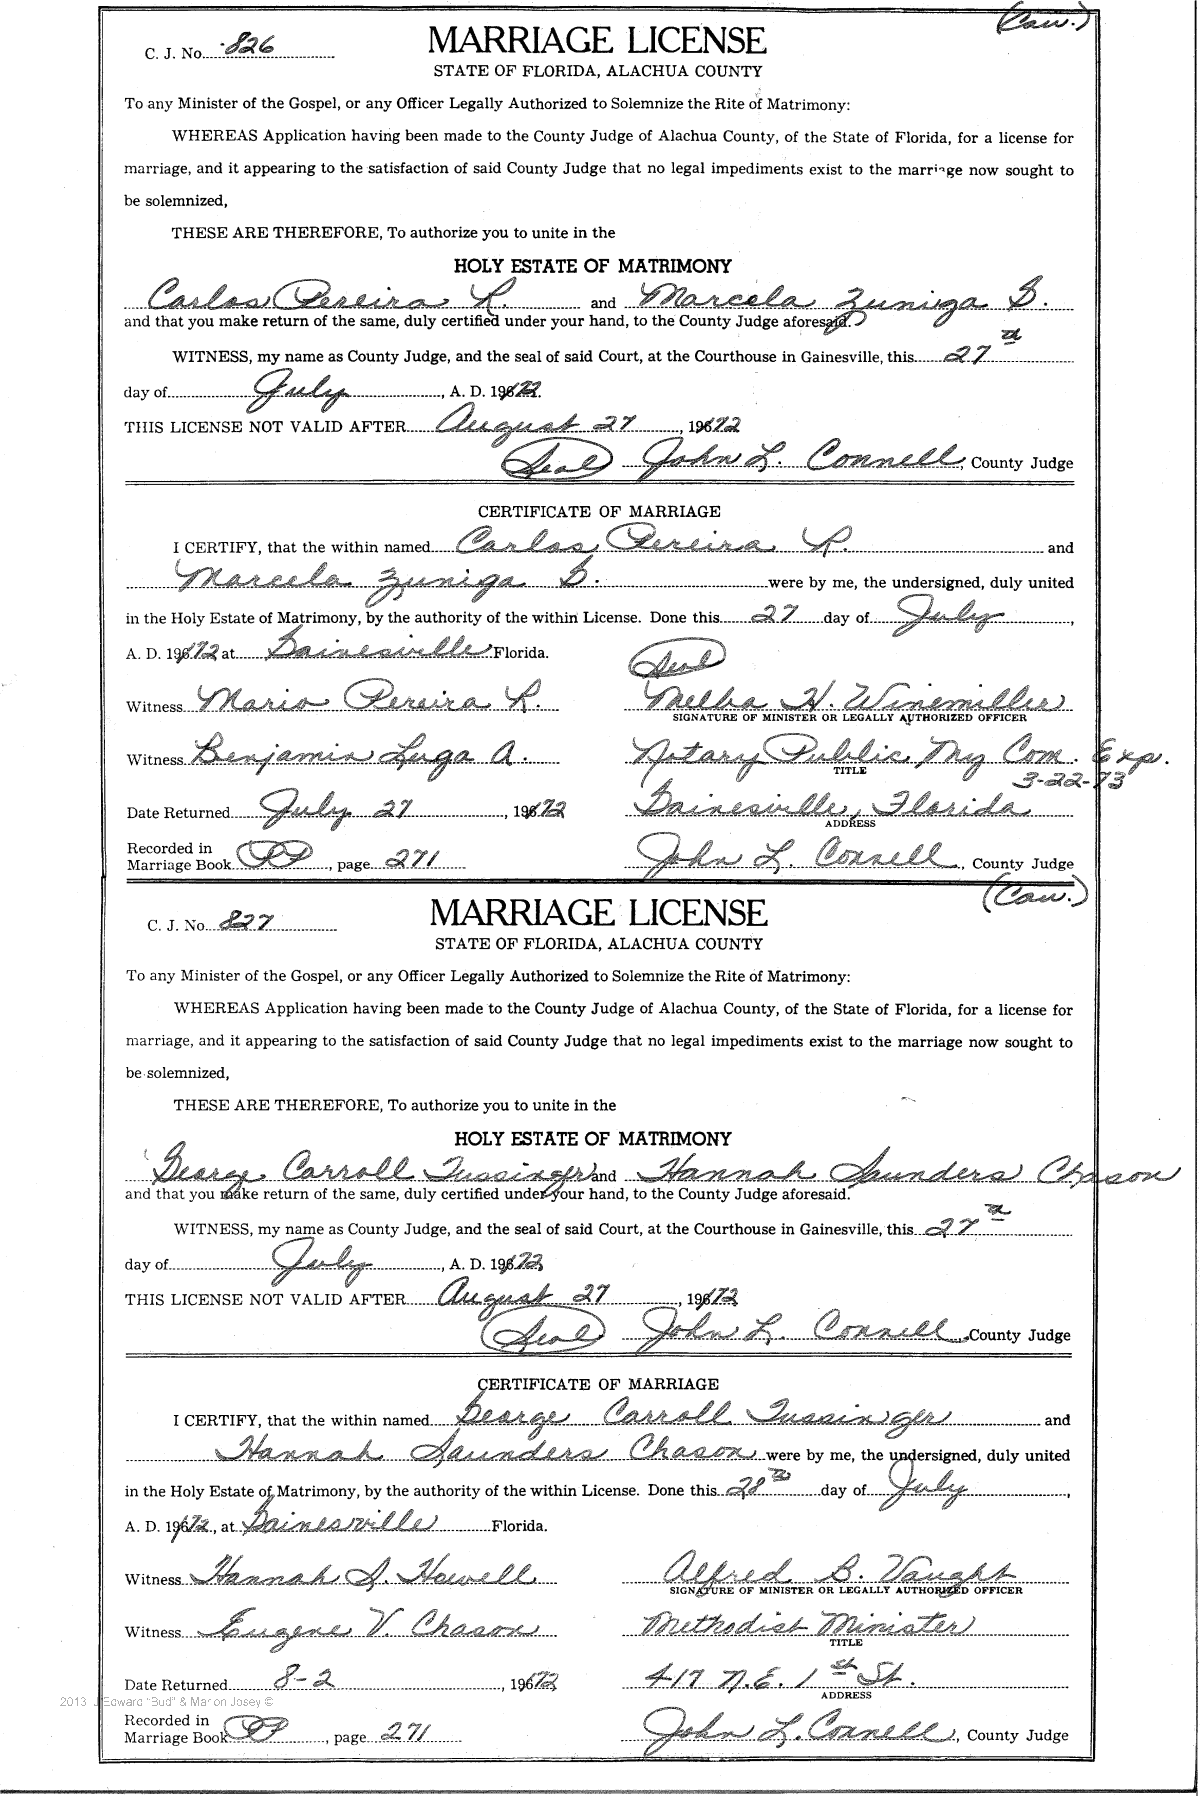 (Cau.)
C. J. No. 826
MARRIAGE LICENSE
STATE OF FLORIDA, ALACHUA COUNTY
To any Minister of the Gospel, or any Officer Legally Authorized to Solemnize the Rite of Matrimony:
WHEREAS Application having been made to the County Judge of Alachua County, of the State of Florida, for a license for
marriage, and it appearing to the satisfaction of said County Judge that no legal impediments exist to the marriage now sought to
be solemnized,
THESE ARE THEREFORE, To authorize you to unite in the
HOLY ESTATE OF MATRIMONY
Carlos Pereira R. and Marcela Zuniga G.
and that you make return of the same, duly certified under your hand, to the County Judge aforesaid.
WITNESS, my name as County Judge, and the seal of said Court, at the Courthouse in Gainesville, this 27th
day of July, A. D. 1972.
THIS LICENSE NOT VALID AFTER August 27, 1972
(Seal) John L. Connell, County Judge
CERTIFICATE OF MARRIAGE
I CERTIFY, that the within named Carlos Pereira R. and
Marcela Zuniga G. were by me, the undersigned, duly united
in the Holy Estate of Matrimony, by the authority of the within License. Done this 27 day of July,
A. D. 1972 at Gainesville Florida.
(Seal)
Witness Mario Pereira R. Melba H. Winemiller
SIGNATURE OF MINISTER OR LEGALLY AUTHORIZED OFFICER
Witness Benjamin Luga A. Notary Public My Com. Exp.
TITLE 3-22-73
Date Returned July 27, 1972 Gainesville, Florida
ADDRESS
Recorded in
Marriage Book PP, page 271 John L. Connell, County Judge
(Cau.)
C. J. No. 827
MARRIAGE LICENSE
STATE OF FLORIDA, ALACHUA COUNTY
To any Minister of the Gospel, or any Officer Legally Authorized to Solemnize the Rite of Matrimony:
WHEREAS Application having been made to the County Judge of Alachua County, of the State of Florida, for a license for
marriage, and it appearing to the satisfaction of said County Judge that no legal impediments exist to the marriage now sought to
be solemnized,
THESE ARE THEREFORE, To authorize you to unite in the
HOLY ESTATE OF MATRIMONY
George Carroll Tussinger and Hannah Saunders Chason
and that you make return of the same, duly certified under your hand, to the County Judge aforesaid.
WITNESS, my name as County Judge, and the seal of said Court, at the Courthouse in Gainesville, this 27th
day of July, A. D. 1972
THIS LICENSE NOT VALID AFTER August 27, 1972
(Seal) John L. Connell, County Judge
CERTIFICATE OF MARRIAGE
I CERTIFY, that the within named George Carroll Tussinger and
Hannah Saunders Chason were by me, the undersigned, duly united
in the Holy Estate of Matrimony, by the authority of the within License. Done this 28th day of July,
A. D. 1972, at Gainesville Florida.
Witness Hannah S. Howell Alfred B. Vaught
SIGNATURE OF MINISTER OR LEGALLY AUTHORIZED OFFICER
Witness Eugene V. Chason Methodist Minister
TITLE
Date Returned 8-2, 1972 417 N.E. 1st St.
ADDRESS
2013 J Edward "Bud" & Marion Josey ©
Recorded in
Marriage Book PP, page 271 John L. Connell, County Judge